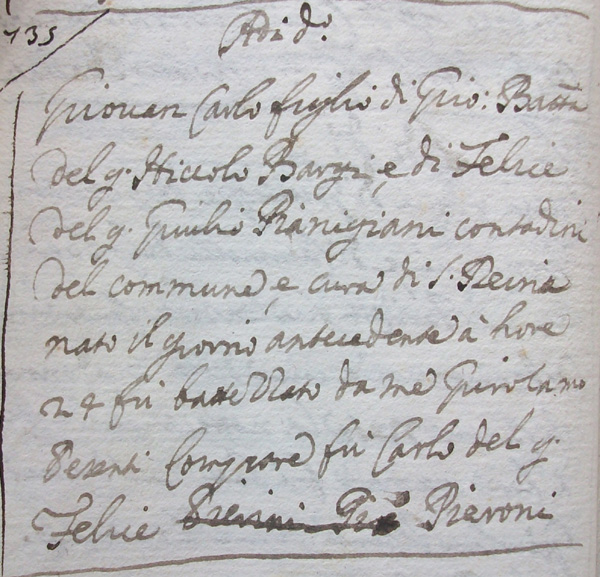 735
Adi d.o
Giovan Carlo figlio di Gio: Batta
del q. Niccolo Bargi, e di Felice
del q. Giulio Pianigiani contadini
del commune, e cura di S. Reina
nato il giorno antecedente à hore
24 fù battezzato da me Girolamo
Compare fù Carlo del q.
Felice Pieroni